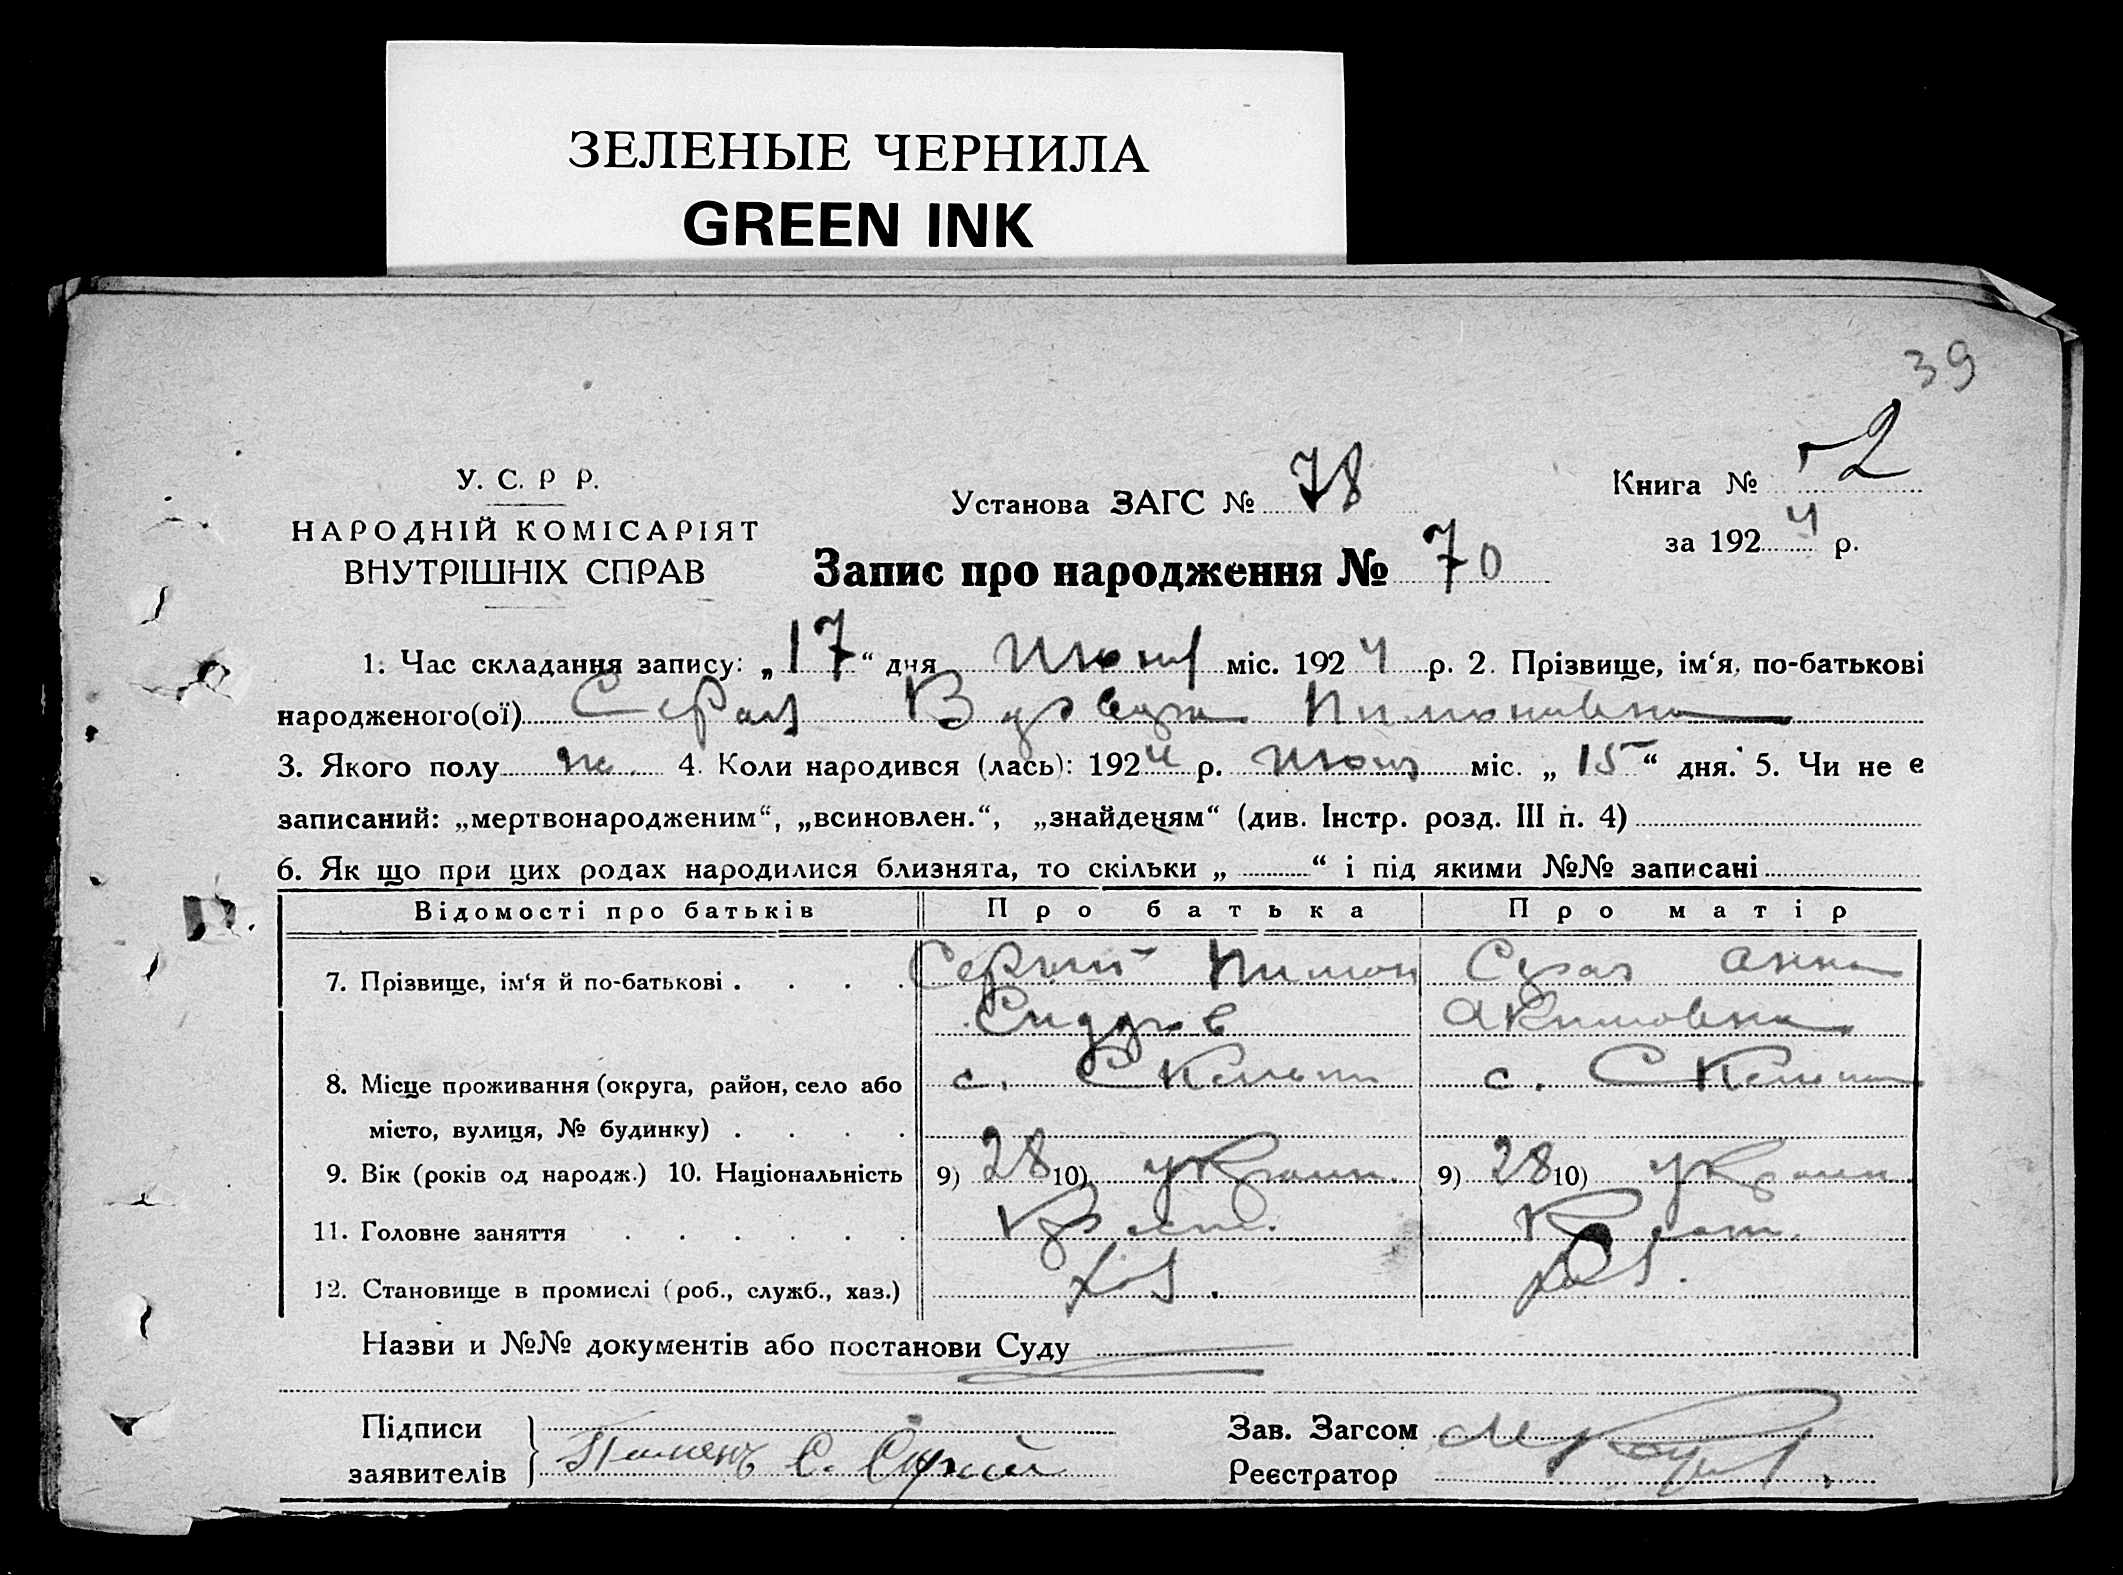 ЗЕЛЕНЫЕ ЧЕРНИЛА
GREEN INK
39
У. С. Р Р.
НАРОДНІЙ КОМІСАРІЯТ
ВНУТРІШНІХ СПРАВ
Установа ЗАГС № 78
Книга № 2
за 1924 р.
Запис про народження № 70
1. Час складання запису: „17“ дня Июня міс. 1924 р. 2. Прізвище, ім‘я, по-батькові
народженого(ої) Пимоновна
3. Якого полу ж. 4. Коли народився (лась): 1924 р. Июня міс. „15“ дня. 5. Чи не є
записаний: „мертвонародженим“, „всиновлен.“, „знайденям“ (див. Інстр. розд. III п. 4)
6. Як що при цих родах народилися близнята, то скільки „ “ і під якими №№ записані
Відомості про батьків Про батька Про матір
7. Прізвище, ім‘я й по-батькові . . . . Пимон Анна
Акимовна
8. Місце проживання (округа, район, село або с. с.
місто, вулиця, № будинку) . . . .
9. Вік (років од народж.) 10. Національність 9) 28 10) Украин. 9) 28 10) Украин
11. Головне заняття . . . . . . Крест. Крест.
12. Становище в промислі (роб., служб., хаз.) хоз. хоз.
Назви и №№ документів або постанови Суду
Підписи
заявителів С.
Зав. Загсом
Реєстратор